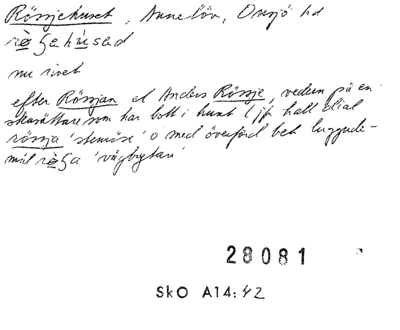 Rössjehuset, Annelöv, Onsjö hd
rö̀ʂahúsəd
nu rivet
efter Rössjan el Anders Rössje, vedern på en
stensättare som har bott i huset (jfr hall dial
rössja 'stenröse' o med överförd bet luggude-
mål rö̀ʂa 'vägbytare'
28081
SkO A14:42